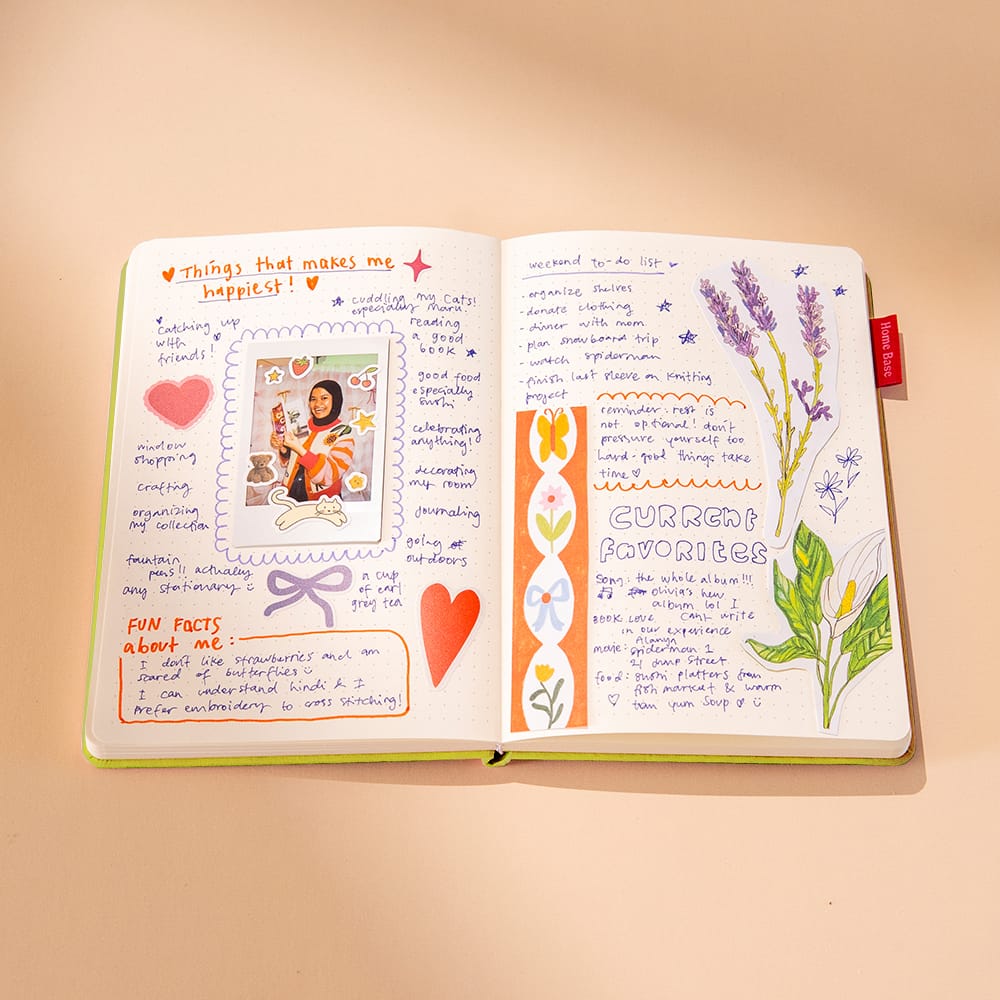 Things that makes me
happiest!
catching up
with
friends!
window
shopping
crafting
organizing
my collection
fountain
pens!! actually
any stationary
cuddling my cats!
especially maru.
reading
a good
book
good food
especially
sushi
celebrating
anything!
decorating
my room
journaling
going
outdoors
a cup
of earl
grey tea
FUN FACTS
about me:
I don't like strawberries and am
scared of butterflies
I can understand hindi & I
prefer embroidery to cross stitching!
weekend to-do list
- organize shelves
- donate clothing
- dinner with mom
- plan snowboard trip
- watch spiderman
- finish last sleeve on knitting
project
reminder: rest is
not optional! don't
pressure yourself too
hard. good things take
time
CURRENT
FAVORITES
song: the whole album!!!
olivia's new
album lol I
can't write
BOOK: LOVE
in our experience
Alanya
movie: spiderman 1
21 jump street
food: sushi platters from
fish market & warm
tom yum soup
Home Base